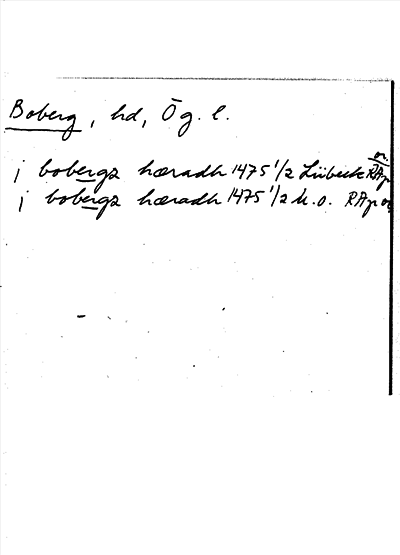 Boberg, hd, Ög. l.
j bobergs hæradh 1475 1/2 Lübeck RAp or.
j bobergs hæradh 1475 1/2 u.o. RAp or.